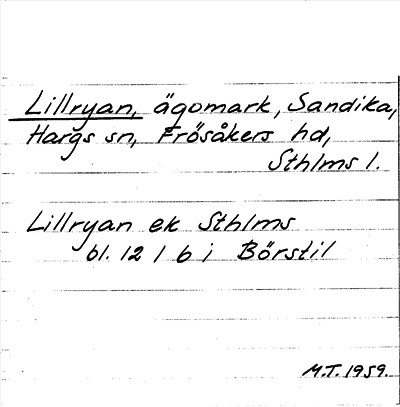 Lillryan, ägomark, Sandika,
Hargs sn, Frösåkers hd,
Sthlms l.
Lillryan ek Sthlms
bl. 12 1 b i Börstil
M.T. 1959.